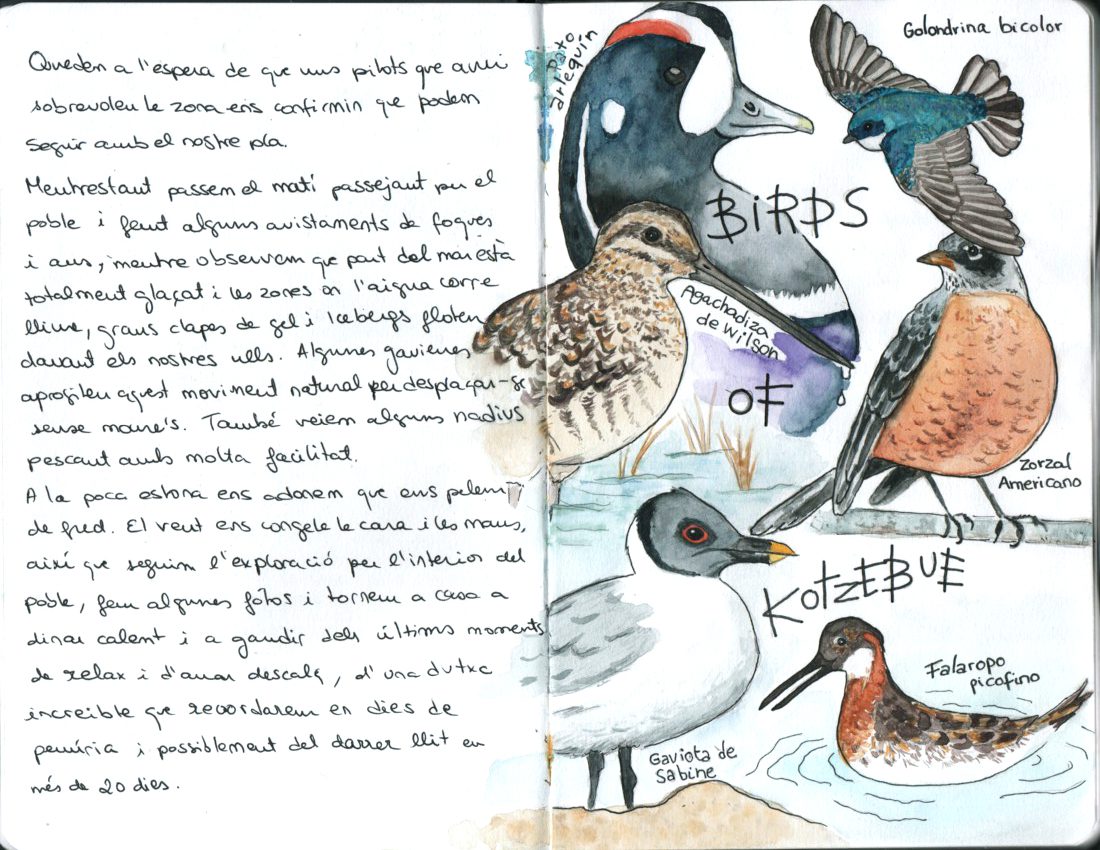 Quedem a l'espera de que uns pilots que avui
sobrevoleu la zona ens confirmin que podem
seguir amb el nostre pla.
Mentrestant passem el matí passejant pu el
poble i fent alguns avistaments de foques
i aus, mentre observem que part del mar està
totalment glaçat i les zones on l'aigua corre
lliure, grans clapes de gel i Icebergs floten
davant els nostres ulls. Algunes gavienes
aprofiten aquest moviment natural per desplaçar-se
sense moure's. També veiem alguns nadius
pescant amb molta facilitat.
A la poca estona ens adonem que ens pelem
de fred. El vent ens congela la cara i les mans,
així que seguim l'exploració per l'interior del
poble, fem algunes fotos i tornem a casa a
dinar calent i a gaudir dels últims moments
de relax i d'anar descalç, d'una dutxa
increible que recordarem en dies de
penúria i possiblement del darrer llit en
més de 20 dies.
Pato
arlequín
Golondrina bicolor
BiRDS
Agachadiza
de Wilson
OF
Zorzal
Americano
KOTZEBUE
Falaropo
picofino
Gaviota de
Sabine